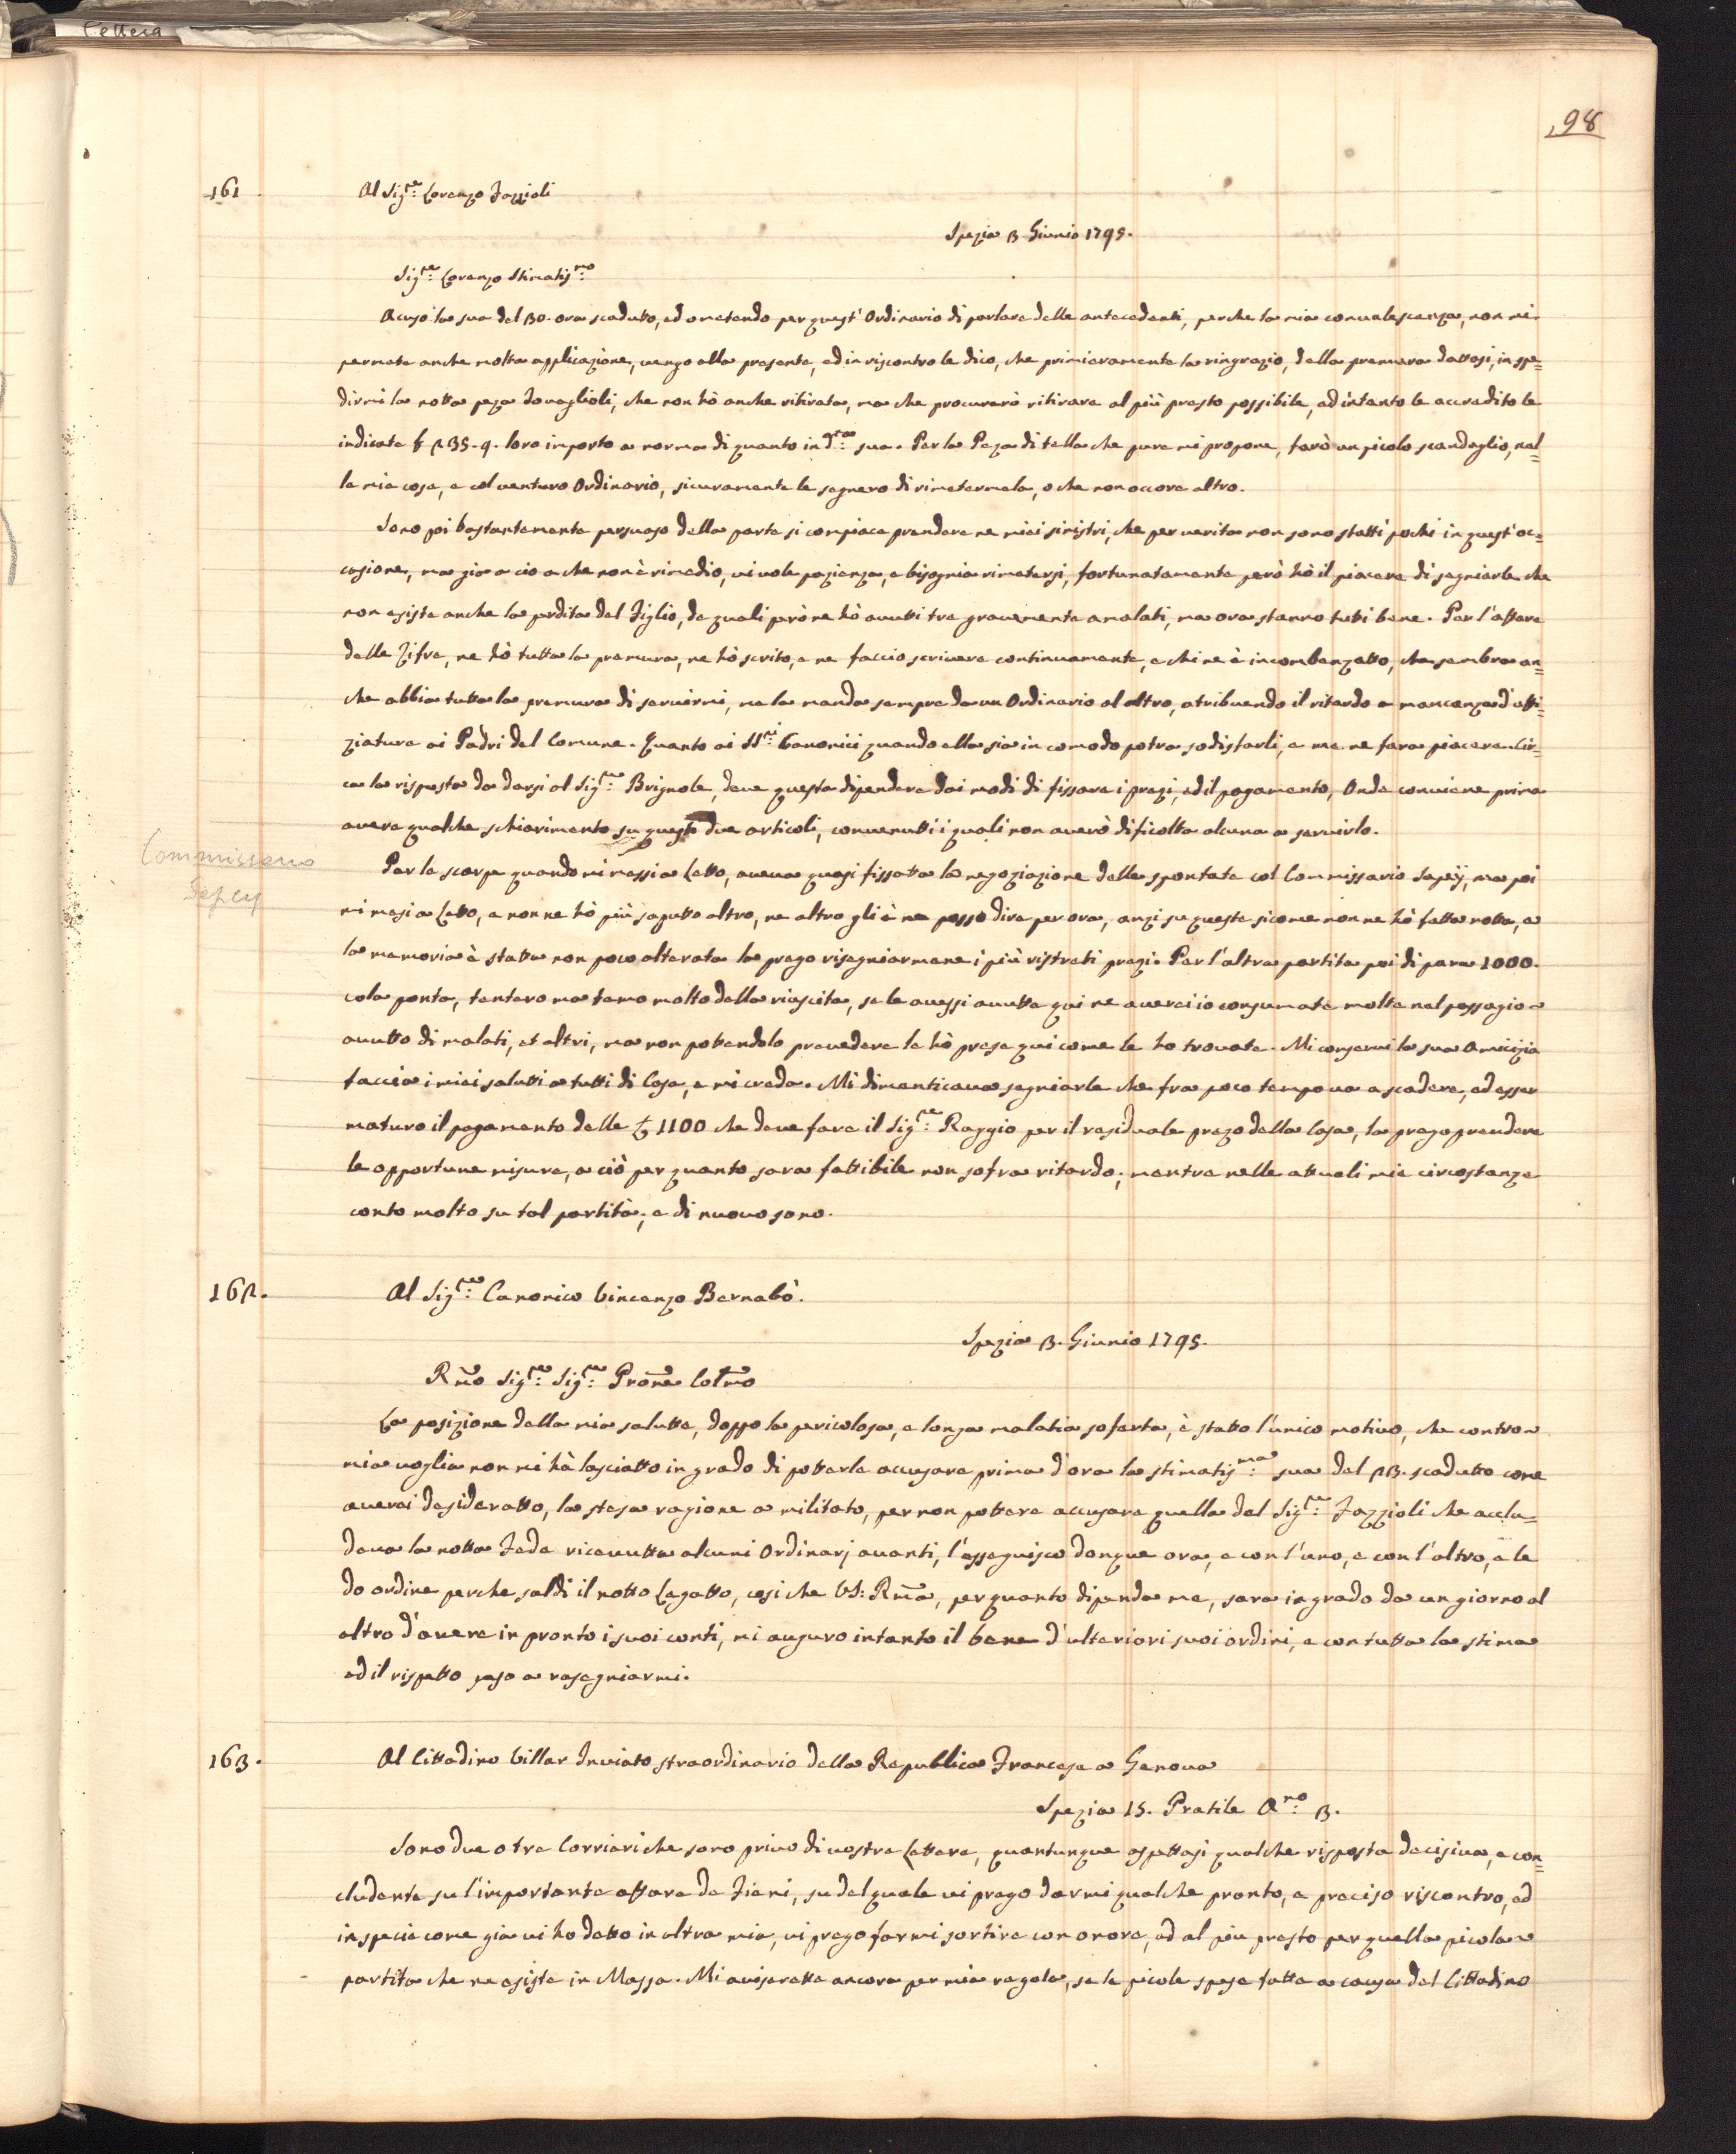 Lettera
98
161
Al Sig.re Lorenzo Fazzioli
Spezia 3 Giunio 1795.
Sig.re Lorenzo Stimatis.mo
Acuso la sua del 30. ora scadutto, ed ometendo per quest' Ordinario di parlare delle antecedenti, perche la mia convalescenza, non mi
permete anche molta applicazione, vengo alla presente, ed in riscontro le dico, che primieramente la ringrazio, della premura dattasi, in spe=
dirmi la notta peza Tovaglioli, che non hò anche ritirata, ma che procurerò ritirare al più presto possibile, ed intanto le accredito le
indicate £ 235.9. loro importo a norma di quanto in d.ta sua. Per la Peza di tella che pure mi propone, farò un picolo scandaglio, nel=
le mie cose, e col venturo Ordinario, sicuramente le segnero di rimetermela, o che non occore altro.
Sono poi bastantemente persuaso della parte si compiace prendere ne miei sinistri, che per verita non sono statti pochi in quest' oc=
casione, ma gia a cio a che non è rimedio, vi vole pazienza, e bisognia rimetersi, fortunatamente però hò il piacere di segniarle che
non esiste anche la perdita del Figlio, de quali però ne hò avutti tre gravemente amalati, ma ora stanno tutti bene. Per l'affare
delle Zifre, ne hò tutta la premura, ne hò scrito, e ne faccio scrivere continuamente, e chi ne è incombenzatto, che sembra an=
che abbia tutta la premura di servirmi, me la manda sempre da un Ordinario al altro, atribuendo il ritardo a mancanza d'offi=
ziature ai Padri del Comune. Quanto ai SS.ri Canonici quando ella sia in comodo potra sodisfarli, e me ne fara piacere. Cir=
ca la risposta da darsi al Sig.re Brignole, deve questa dipendere dai modi di fissare i prezi, ed il pagamento, Onde conviene prima
avere qualche schiarimento su questi due articoli, convenutti i quali non averò dificolta alcuna a servirlo.
Commissario
Sepey
Per le scarpe quando mi messi a Letto, aveva quasi fissatta la negoziazione delle spontate col Commissario Sepeÿ, ma poi
mi mesi a Letto, e non ne hò più saputto altro, ne altro gli è ne posso dire per ora, anzi su queste sicome non ne hò fatta notta, e
la memoria è statta non poco alterata la prego risegniarmene i più ristreti prezi. Per l'altra partita poi di para 1000.
cola ponta, tentero ma temo molto della riuscita, se le avessi avutte qui ne averei io consumate molte nel passagio
avutto di malati, et altri, ma non pottendolo prevedere le hò prese qui come le ho trovate. Mi conservi la sua Amicizia
faccia i miei salutti a tutti di Casa, e mi creda. Mi dimenticava segniarle che fra poco tempo va a scadere, ed esser
maturo il pagamento delle £ 1100 che deve fare il Sig.re Raggio per il residuale prezo della Casa, la prego prendere
le opportune misure, a ciò per quanto sara fattibile non sofra ritardo, mentre nelle attuali mie circostanze
conto molto su tal partita, e di nuovo sono.
162.
Al Sig.re Canonico Vincenzo Bernabò.
Spezia 3. Giunio 1795.
Rmo Sig.re Sig.re Prone Colmo
La posizione della mia salutte, doppo la pericolosa, e longa malatia soferta, è statto l'unico motivo, che contro
mia voglia non mi hà lasciatto in grado di potterle accusare prima d'ora la stimatis.ma sua del 23. scadutto come
averei desideratto, la stesa ragione a militato, per non pottere accusare quella del Sig.re Fazzioli che acclu=
deva la notta Fede ricevutta alcuni Ordinarj avanti, l'asseguisco donque ora, e con l'uno, e con l'altro, e le
do ordine perche saldi il notto Legatto, cosi che VS: Rma, per quanto dipenda me, sara in grado da un giorno al
altro d'avere in pronto i suoi conti, mi auguro intanto il bene d'ulteriori suoi ordini, e con tutta la stima
ed il rispetto paso a rasegniarmi.
163.
Al Cittadino Villar Inviato straordinario della Republica Francese a Genova
Spezia 15. Pratile A.no 3.
Sono due o tre Corrieri che sono privo di vostre Lettere, quantunque aspettasi qualche risposta decisiva, e con=
cludente su l'importante affare de Fieni, su del quale vi prego darmi qualche pronto, e preciso riscontro, ed
in specie come gia vi ho detto in altra mia, vi prego farmi sortire con onore, ed al piu presto per quella picola
partita che ne esiste in Massa. Mi aviserette ancora per mia regola, se le picole spese fatte a causa del Cittadino